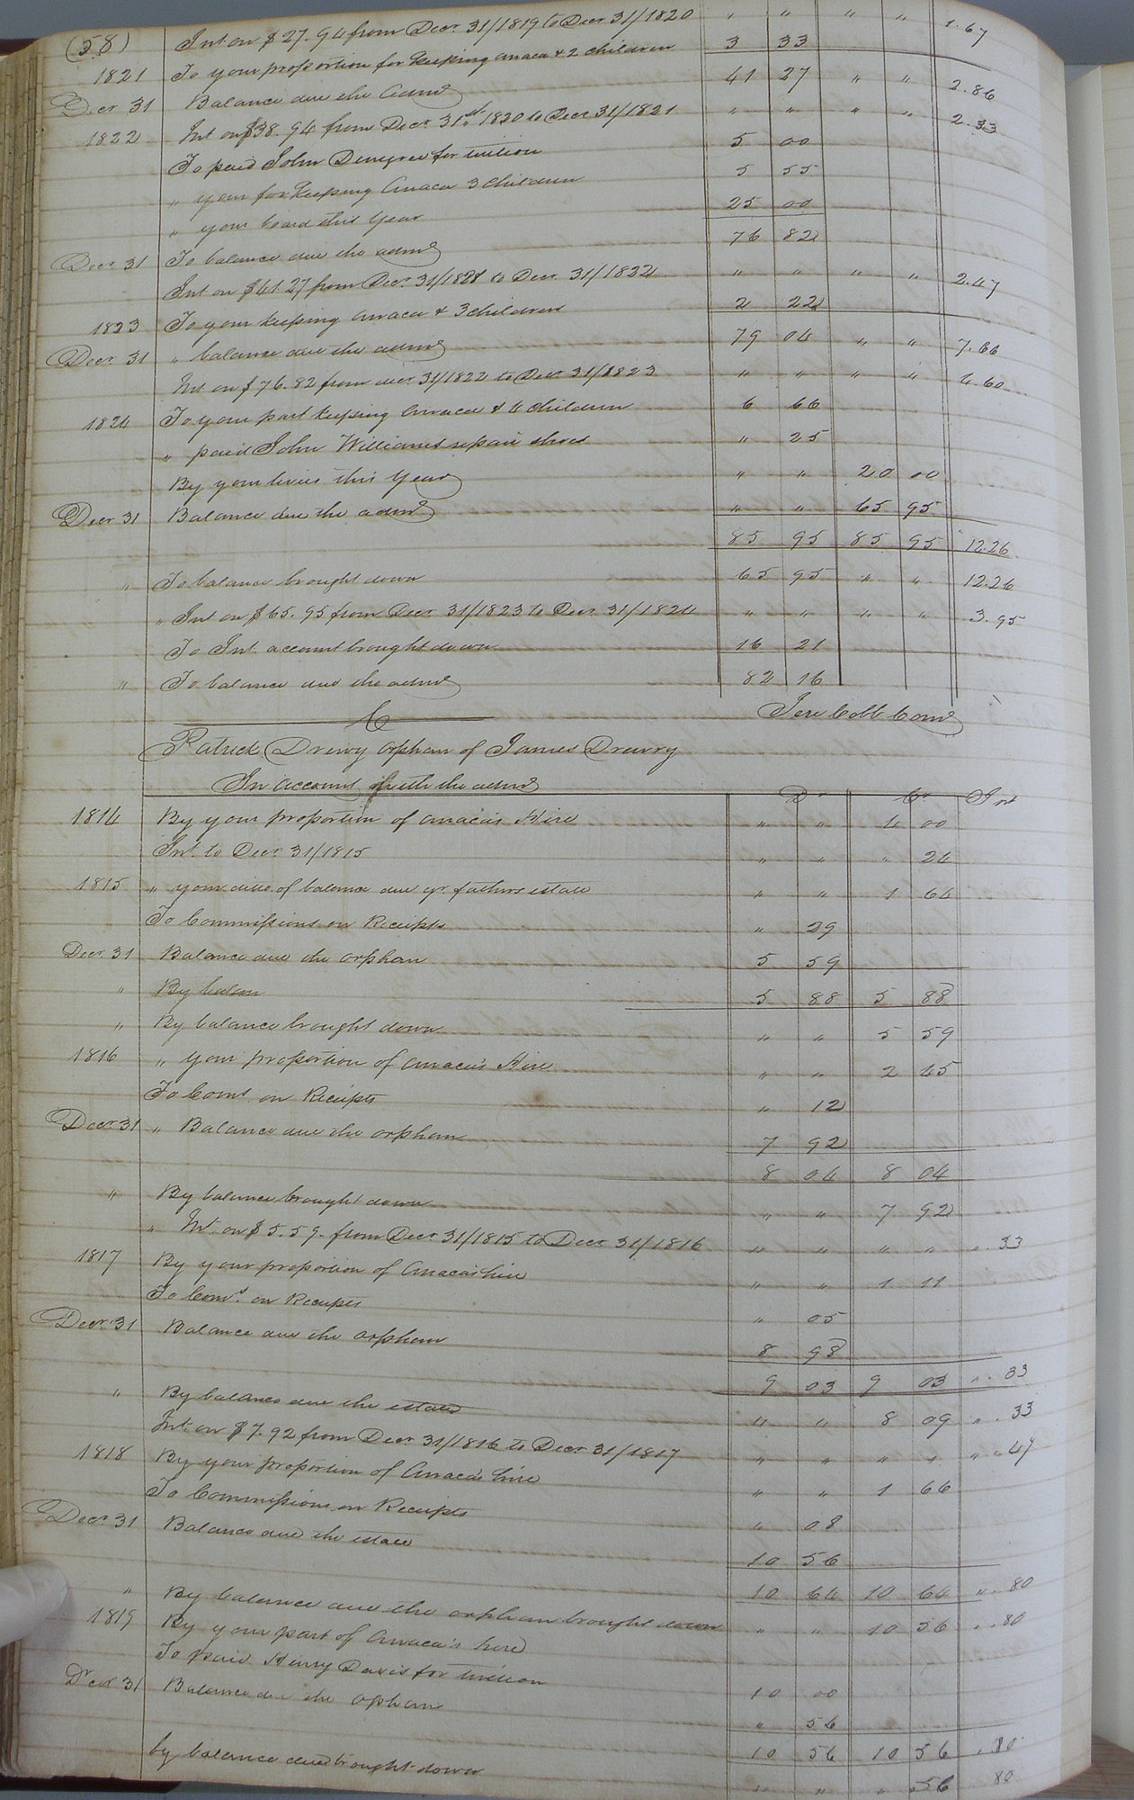 (58) Int on $27.94 from Decr 31/1819 to Decr 31/1820 " " " " 1.67
1821 To your proportion for keeping Anaca & 2 children 3 33
Decr 31 Balance due the admr 41 27 " " 2.86
1822 Int on $38.94 from Decr 31st 1820 to Decr 31/1821 " " " " 2.33
To paid John Denegree for tuition 5 00
" your for keeping Anaca 3 children 5 55
" your board this year 25 00
Decr 31 To balance due the admr 76 82
Int on $41.27 from Decr 31/1821 to Decr 31/1822 " " " " 2.47
1823 To your keeping Anaca & 3 children 2 22
Decr 31 " balance due the admr 79 04 " " 7.66
Int on $76.82 from decr 31/1822 to Decr 31/1823 " " " " 4.60
1824 To your part keeping Anaca & 4 children 6 66
" paid John Williams repair shoes " 25
By your hires this year " " 20 00
Decr 31 Balance due the admr " " 65 95
85 95 85 95 12.26
" To balance brought down 65 95 " " 12.26
" Int on $65.95 from Decr 31/1823 to Decr 31/1824 " " " " 3.95
To Int account brought down 16 21
" To balance due the admr 82 16
Jere Cobb Comr
Patrick Drewry Orphan of James Drewry
In account with the admr
Dr Cr Int
1814 By your proportion of Anaca's Hire " " 4 00
Int to Decr 31/1815 " " " 24
1815 " your divd of balance due yr. fathers estate " " 1 64
To Commissions on Receipts " 29
Decr 31 Balance due the orphan 5 59
" By balan 5 88 5 88
" By balance brought down " " 5 59
1816 " your proportion of Anaca's Hire " " 2 45
To Coms on Receipts " 12
Decr 31 " Balance due the orphan 7 92
8 04 8 04
" By balance brought down " " 7 92
" Int on $5.59 from Decr 31/1815 to Decr 31/1816 " " " " ".33
1817 By your proportion of Anacas hire " " 1 11
To Coms on Receipts " 05
Decr 31 Balance due the orphan 8 98
9 03 9 03 ".33
" By balance due the estate " " 8 09 ".33
Int on $7.92 from Decr 31/1816 to Decr 31/1817 " " " " ".47
1818 By your proportion of Anaca's hire " " 1 66
To Commissions on Receipts " 08
Decr 31 Balance due the estate 10 56
10 64 10 64 ".80
" By balance due the orphan brought down " " 10 56 ".80
1819 By your part of Anaca's hire
To paid Henry Davis for tuition 10 00
Decr 31 Balance due the orphan " 56
10 56 10 56 ".80
by balance due brought down " " " .56 80